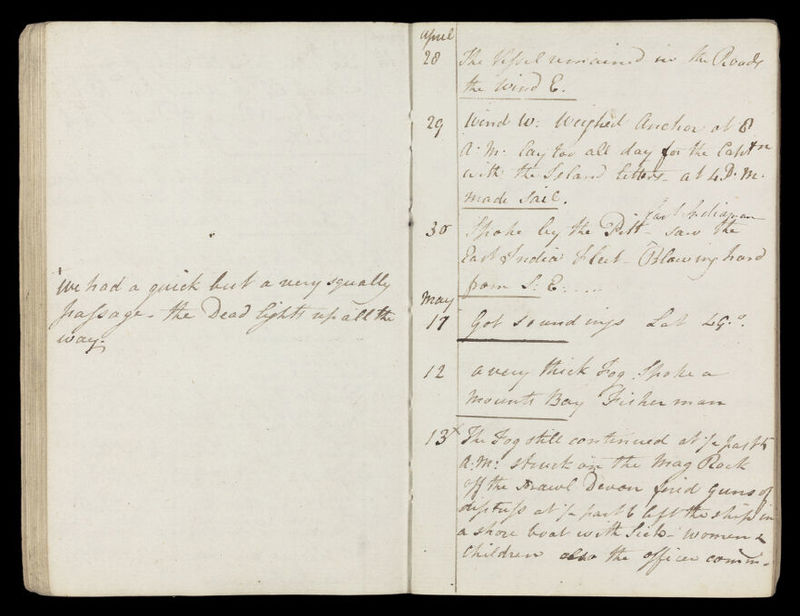 We had a quick but a very squally
passage - the Dead lights up all the
way.
April
28 The Vessel remained in the Roads
the wind E.
29 Wind W: Weighed Anchor at 8
A.M. lay too all day for the Captn
with the Island letters - at 4 P.M.
made sail.
East Indiaman
30 Spoke by the Pitt - saw the
East India Fleet - Blowing hard
from S: E:
May
11 Got soundings Lat 49.°
12 a very thick Fog. Spoke a
Mounts Bay Fisherman
13 x The Fog still continued at ½ past 5
A.M: struck on the Mag Rock
off the Devon fired Guns of
distress at ½ past 6 left the ship in
a shore boat with Sick - women &
Children also the officer comm-